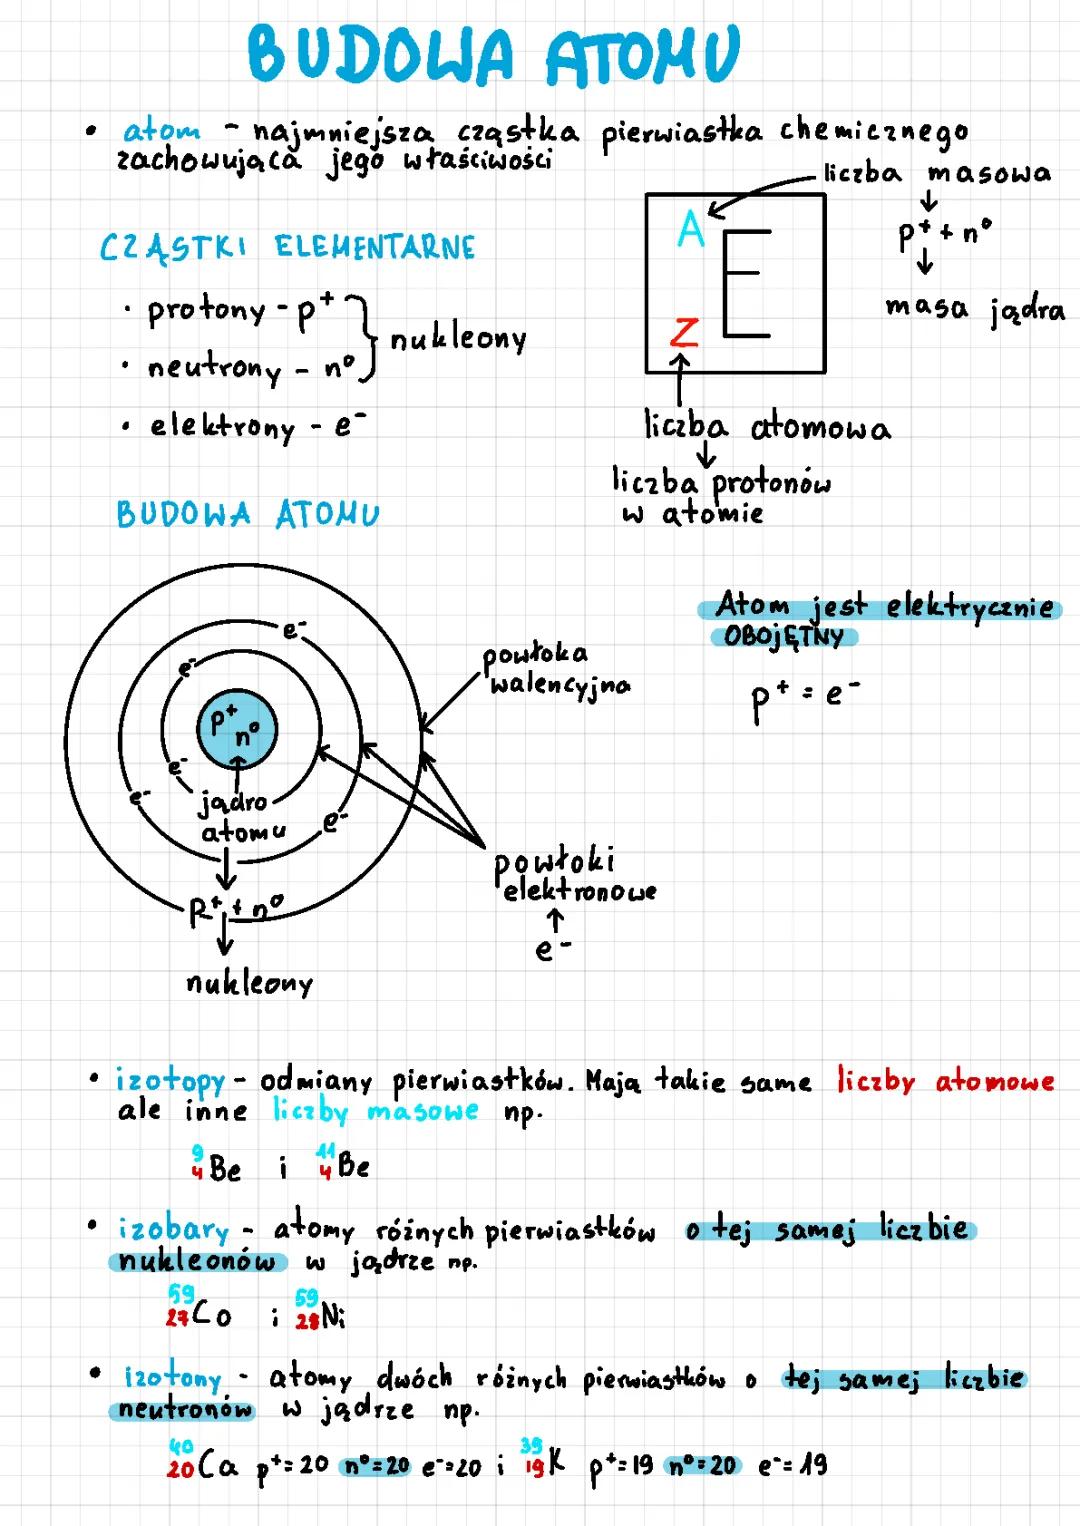 BUDOWA ATOMU
• atom - najmniejsza cząstka pierwiastka chemicznego
zachowująca jego właściwości
liczba masowa
p⁺ + n⁰
masa jądra
A
E
Z
liczba atomowa
liczba protonów
w atomie
CZĄSTKI ELEMENTARNE
· protony - p⁺
· neutrony - n⁰
nukleony
· elektrony - e⁻
BUDOWA ATOMU
e⁻
e⁻
p⁺
n⁰
e⁻
e⁻
e⁻
jądro
atomu
p⁺ + n⁰
nukleony
powłoka
walencyjna
powłoki
elektronowe
e⁻
Atom jest elektrycznie
OBOJĘTNY
p⁺ = e⁻
• izotopy - odmiany pierwiastków. Mają takie same liczby atomowe
ale inne liczby masowe np.
⁹₄Be i ¹¹₄Be
• izobary - atomy różnych pierwiastków o tej samej liczbie
nukleonów w jądrze np.
⁵⁹₂₇Co i ⁵⁹₂₈Ni
• izotony - atomy dwóch różnych pierwiastków o tej samej liczbie
neutronów w jądrze np.
⁴⁰₂₀Ca p⁺=20 n⁰=20 e⁻=20 i ³⁹₁₉K p⁺=19 n⁰=20 e⁻=19